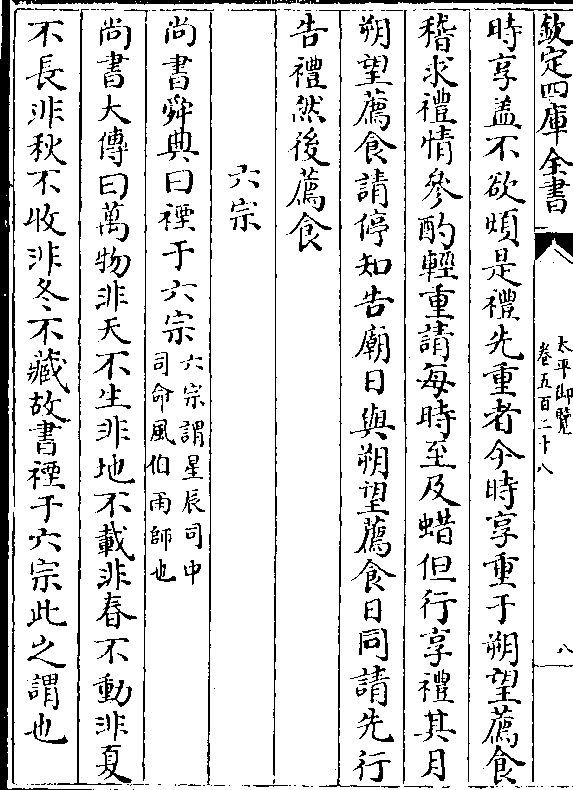 欽定四庫全書
太平御覽
卷五百二十八
八
時享盖不欲煩是禮先重者今時享重于朔望薦食
稽求禮情參酌輕重請每時至及蜡但行享禮其月
朔望薦食請停知告廟日與朔望薦食日同請先行
告禮然後薦食
六宗
尚書舜典曰禋于六宗六宗謂星辰司中
司命風伯雨師也
尚書大傳曰萬物非天不生非地不載非春不動非夏
不長非秋不收非冬不藏故書禋于六宗此之謂也